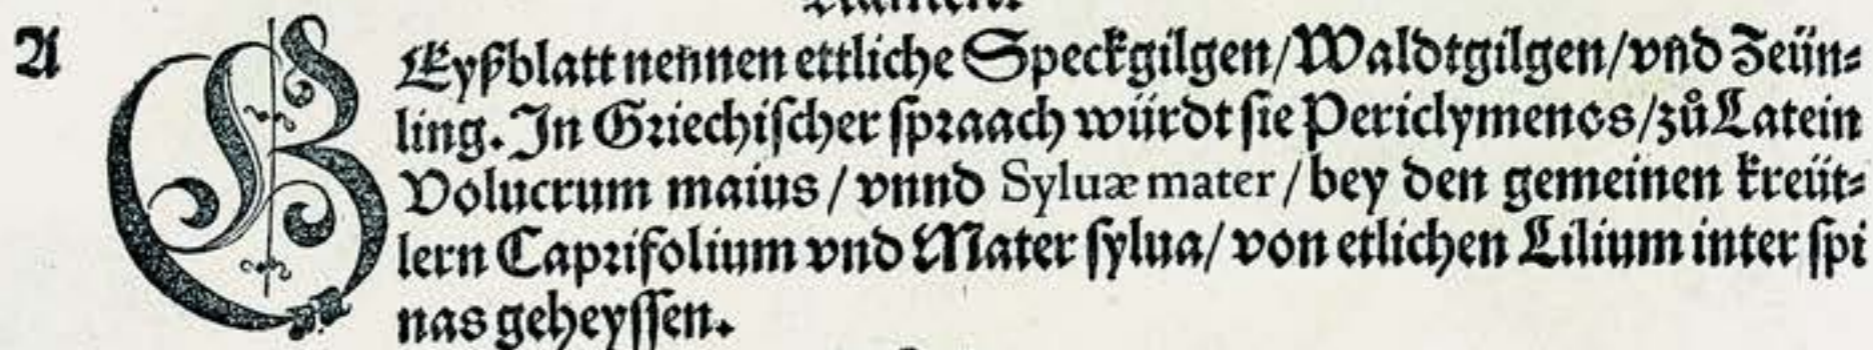 Namen.
A
GEyßblatt nennen ettliche Speckgilgen/Waldtgilgen/vnd Zeün⸗
ling. In Griechischer spraach würdt sie Periclymenos/zů Latein
Volucrum maius/vnnd Syluæ mater/bey den gemeinen kreüt⸗
lern Caprifolium vnd Mater sylua/von etlichen Lilium inter spi
nas geheyssen.